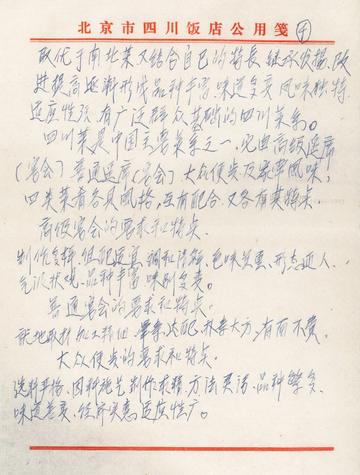 北京市四川饭店公用笺
④
取优于南北菜又结合自己的特长 继承发掘、改
进提高逐渐形成品种丰富味道多变 风味独特
适应性强 有广泛群众基础的四川菜系。
四川菜是中国主要菜系之一,它由高级筵席
(宴会)普通筵席(宴会)大众便餐及家常风味,
四类菜肴各具风格,互有配合,又各有其特点.
高级宴会的要求和特点.
制作复杂,组配适宜,调和清鲜、色味并重、形态逼人.
品种丰富 味别多变。
普通宴会的要求和特点.
就地取材 加工精细 荤素搭配 朴素大方,有面不贵.
大众便餐的要求和特点.
选料严格、因料施艺 制作求精 方法灵活、品种繁多、
味道多变、经济实惠 适应性广。